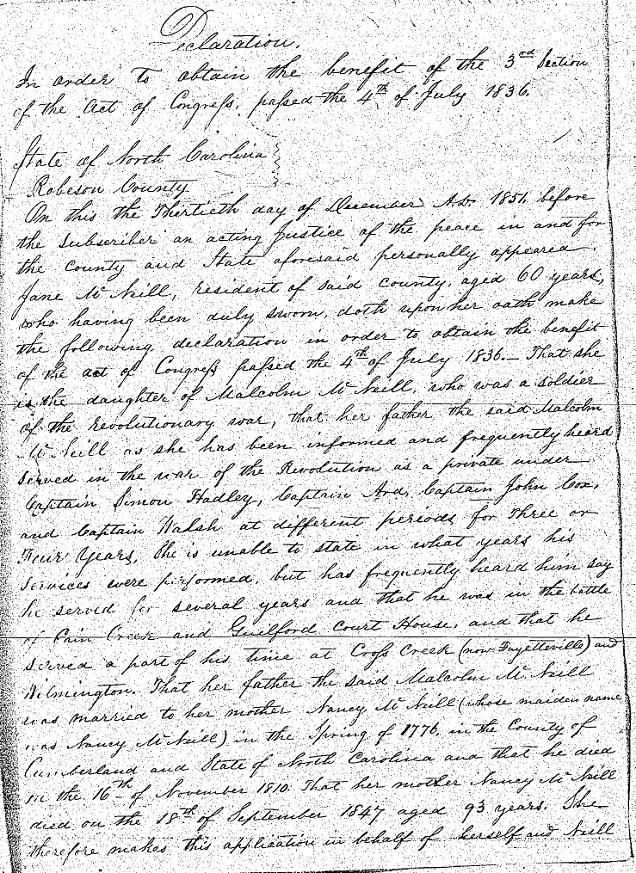 Declaration.
In order to obtain the benefit of the 3rd Section
of the Act of Congress, passed the 4th of July 1836.
State of North Carolina
Robeson County
On this the Thirtieth day of December A.D. 1851 before
the Subscriber an acting Justice of the peace in and for
the county and State aforesaid personally appeared
Jane McNeill, resident of said county, aged 60 years,
who having been duly sworn, doth upon her oath make
the following declaration in order to obtain the benefit
of the act of Congress passed the 4th of July 1836.— That she
is the daughter of Malcolm McNeill, who was a soldier
of the Revolutionary war, that her father the said Malcolm
McNeill as she has been informed and frequently heard
served in the war of the Revolution as a private under
Captain Simon Hadley, Captain Ard, Captain John Cox,
and Captain Walsh at different periods for Three or
Four Years, She is unable to state in what years his
services were performed, but has frequently heard him say
he served for several years and that he was in the battle
of Cain Creek and Guilford Court House, and that he
served a part of his time at Cross Creek (now Fayetteville) and
Wilmington. That her father the said Malcolm McNeill
was married to her mother Nancy McNeill (whose maiden name
was Nancy McNeill) in the Spring of 1776, in the County of
Cumberland and State of North Carolina and that he died
on the 16th of November 1810. That her mother Nancy McNeill
died on the 18th of September 1847 aged 93 years. She
therefore makes this application in behalf of herself and Neill